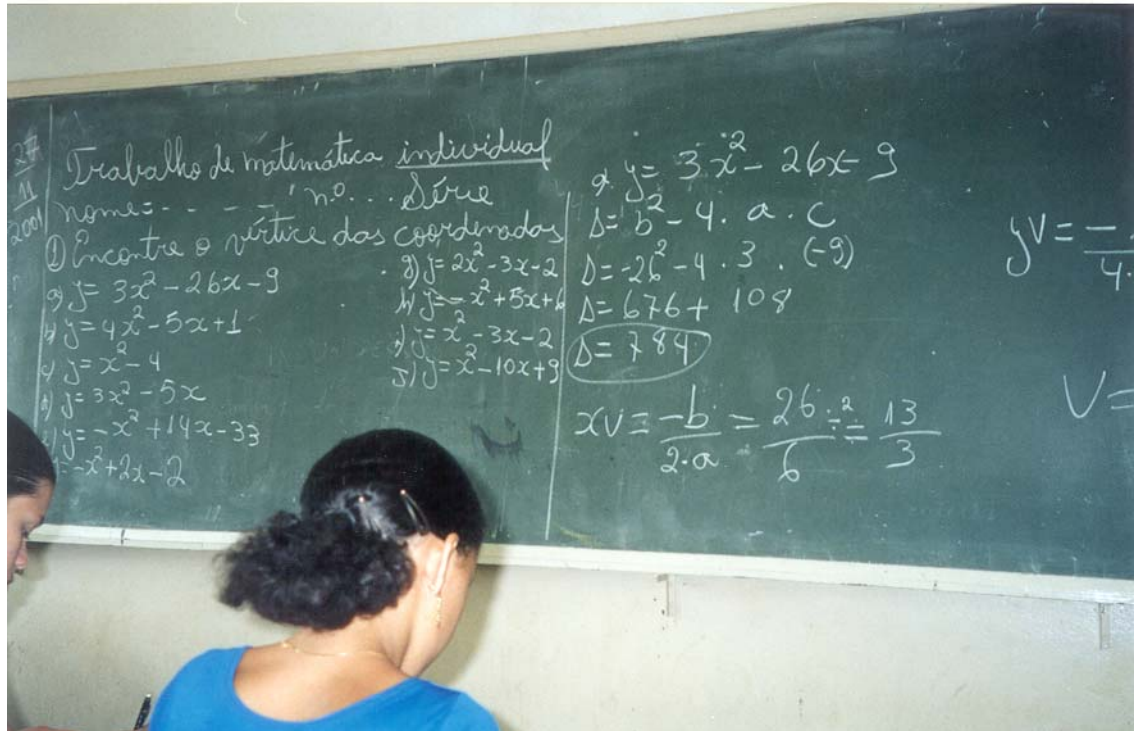 27
11
2001
Trabalho de matemática individual
nome=- - - - - nº... Série
① Encontre o vértice das coordenadas
a) y= 3x² - 26x - 9
b) y= 4x² - 5x + 1
c) y= x² - 4
d) y= 3x² - 5x
e) y= -x² + 14x - 33
= -x² + 2x - 2
g) y= 2x² - 3x - 2
h) y= -x² + 5x + 6
i) y= x² - 3x - 2
J) y= x² - 10x + 9
a) y= 3x² - 26x - 9
Δ= b² - 4 . a . c
Δ= -26² - 4 . 3 . (-9)
Δ= 676 + 108
Δ= 784
xv = -b/2.a = 26/6 ÷2 = 13/3
yv = -
4.
V=